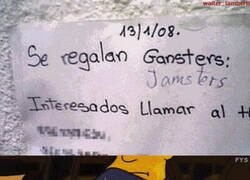 walter_lambert
13/1/08.
Se regalan Gansters:
Jamsters
Interesados Llamar al
FYS